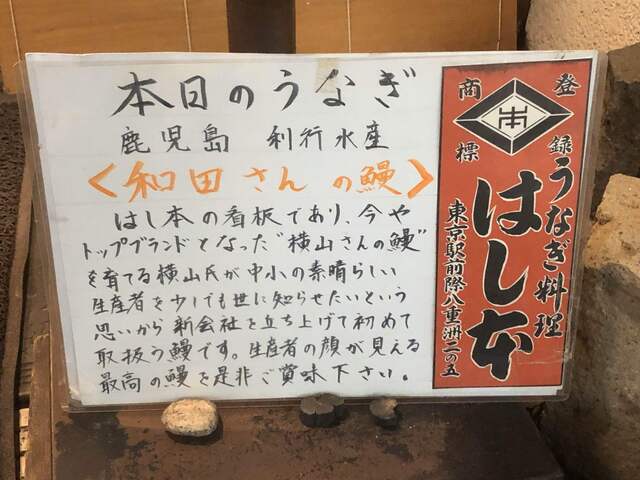 本日のうなぎ
鹿児島 利行水産
<和田さんの鰻>
はし本の看板であり、今や
トップブランドとなった"横山さんの鰻"
を育てる横山氏が中小の素晴らしい
生産者を少しでも世に知らせたいという
思いから新会社を立ち上げて初めて
取扱う鰻です。生産者の顔が見える
最高の鰻を是非ご賞味下さい。
登録
商標
うなぎ料理
はし本
東京駅前際八重洲二の五